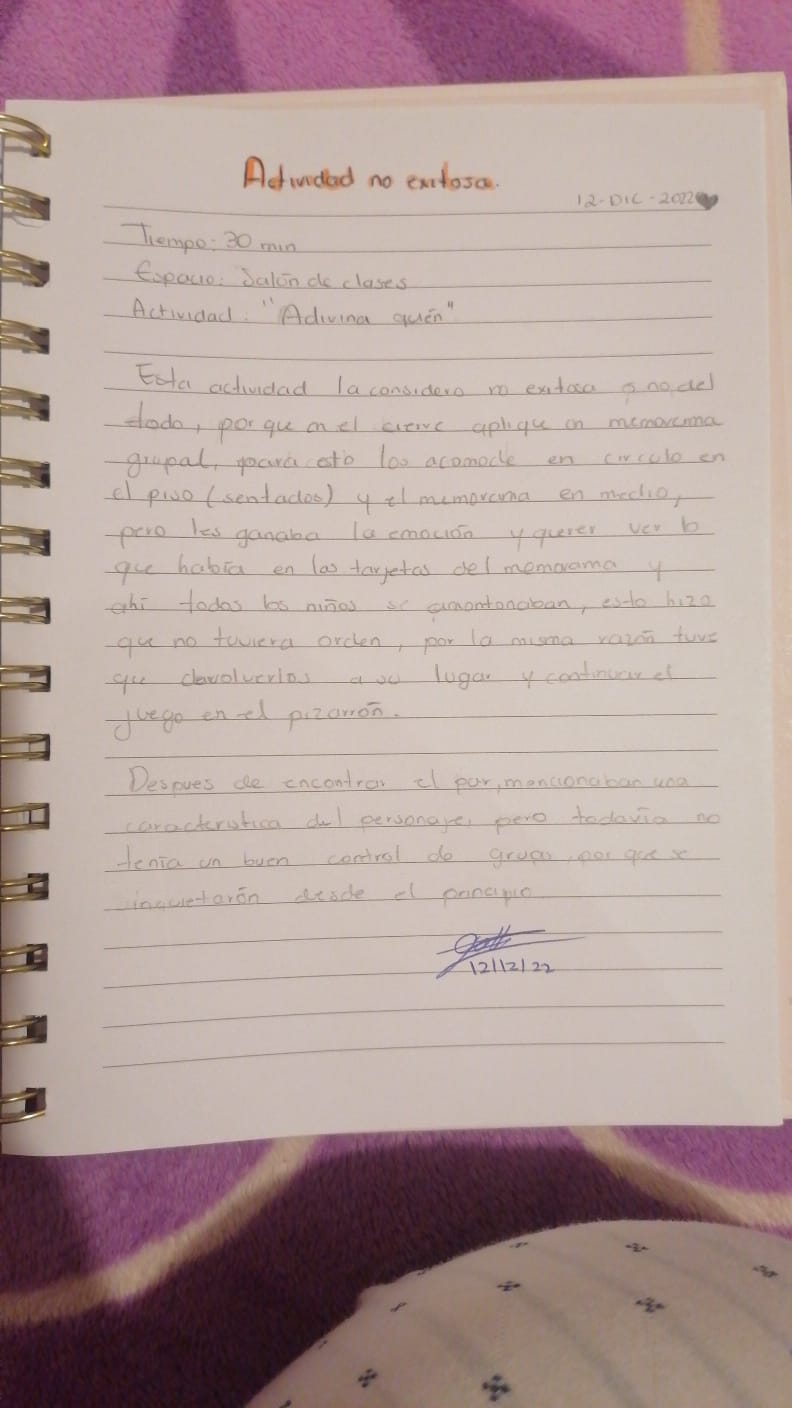 Actividad no exitosa.
12-DIC-2022
Tiempo: 30 min
Espacio: Salón de clases
Actividad: "Adivina quién"
Esta actividad la considero no exitosa o no del
todo, por que en el cierre aplique un memorama
grupal, para esto los acomode en circulo en
el piso (sentados) y el memorama en medio,
pero les ganaba la emoción y querer ver lo
que había en las tarjetas del memorama y
ahí todos los niños se amontonaban, esto hizo
que no tuviera orden, por la misma razón tuve
que devolverlos a su lugar y continuar el
juego en el pizarrón.
Despues de encontrar el par, mencionaban una
caracteristica del personaje, pero todavía no
tenía un buen control de grupo, por que se
inquietarón desde el principio
12/12/22